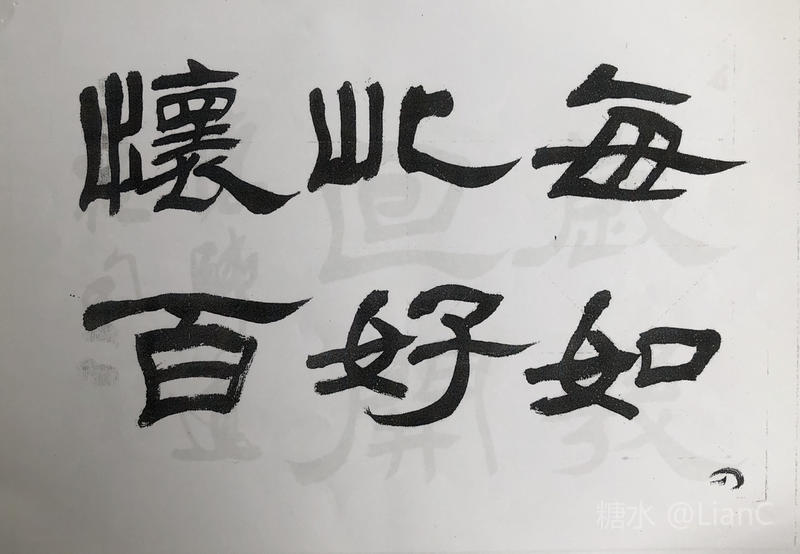 每如
此好
懷百
糖水 @LianC